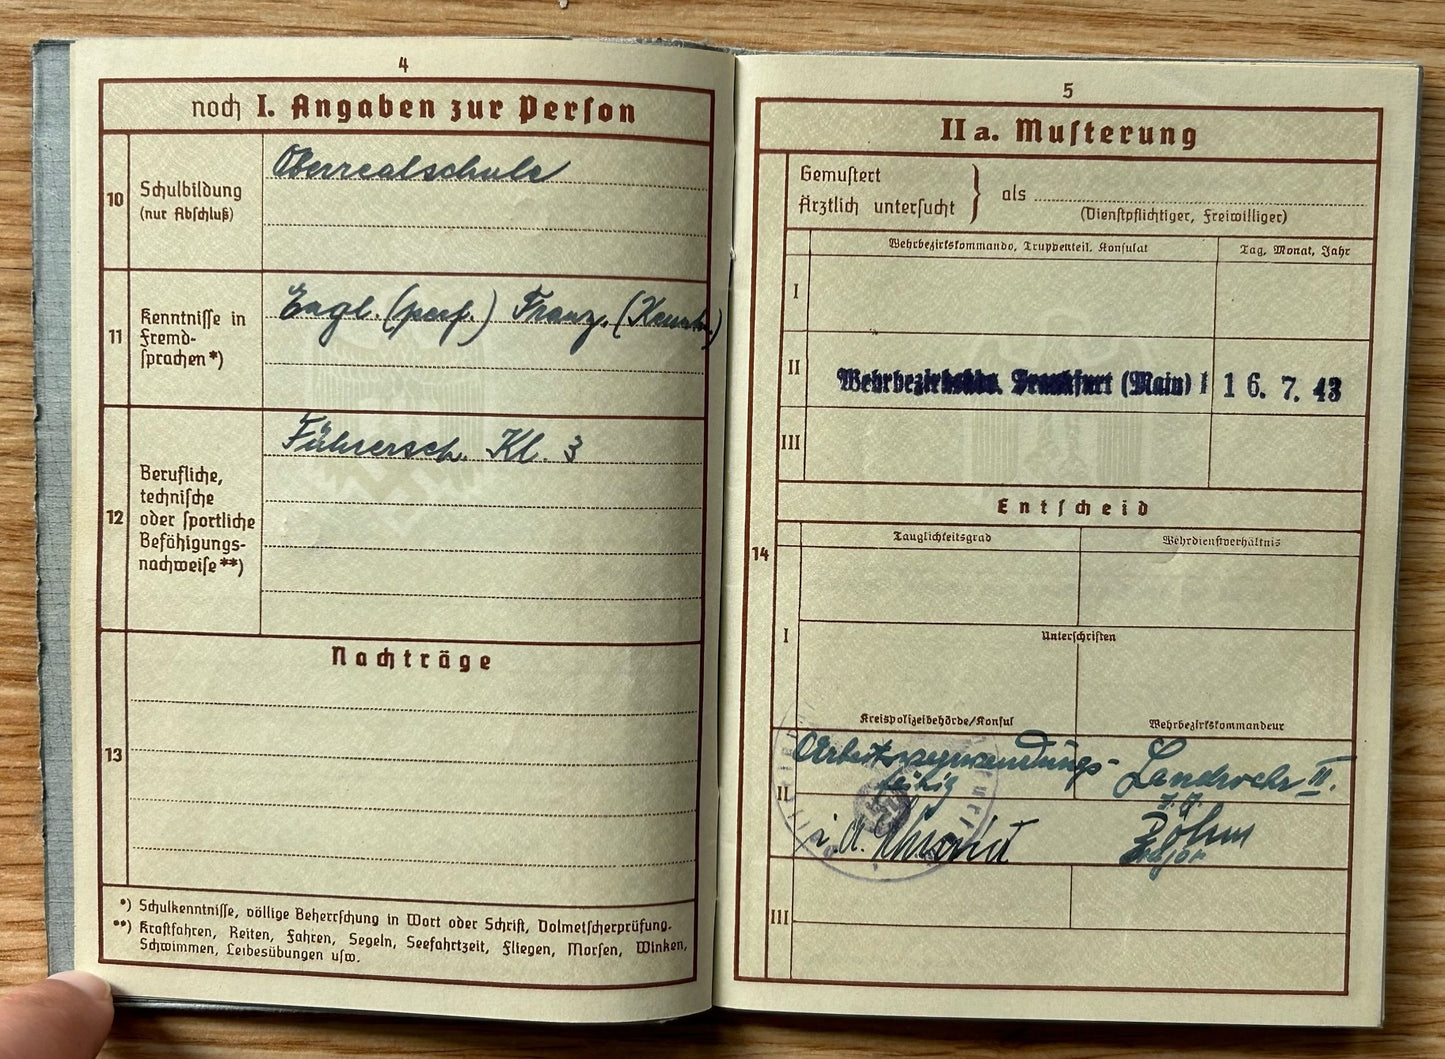 4
noch I. Angaben zur Person
10
Schulbildung
(nur Abschluß)
Oberrealschule
11
Kenntnisse in
Fremd-
sprachen *)
Engl. (perf.) Franz. (Kenntn.)
12
Berufliche,
technische
oder sportliche
Befähigungs-
nachweise **)
Führersch. Kl. 3
Nachträge
13
*) Schulkenntnisse, völlige Beherrschung in Wort oder Schrift, Dolmetscherprüfung.
**) Kraftfahren, Reiten, Fahren, Segeln, Seefahrtzeit, Fliegen, Morsen, Winken,
Schwimmen, Leibesübungen usw.
5
II a. Musterung
Gemustert
Ärztlich untersucht
als
(Dienstpflichtiger, Freiwilliger)
Wehrbezirkskommando, Truppenteil, Konsulat
Tag, Monat, Jahr
I
II
Wehrbezirkskdo. Frankfurt (Main) I
16. 7. 43
III
Entscheid
14
Tauglichkeitsgrad
Wehrdienstverhältnis
I
Unterschriften
Kreispolizeibehörde/Konsul
Wehrbezirkskommandeur
II
Arbeitsverwendungs-
fähig
Landwehr II.
i. A.
Böhm
Major
III